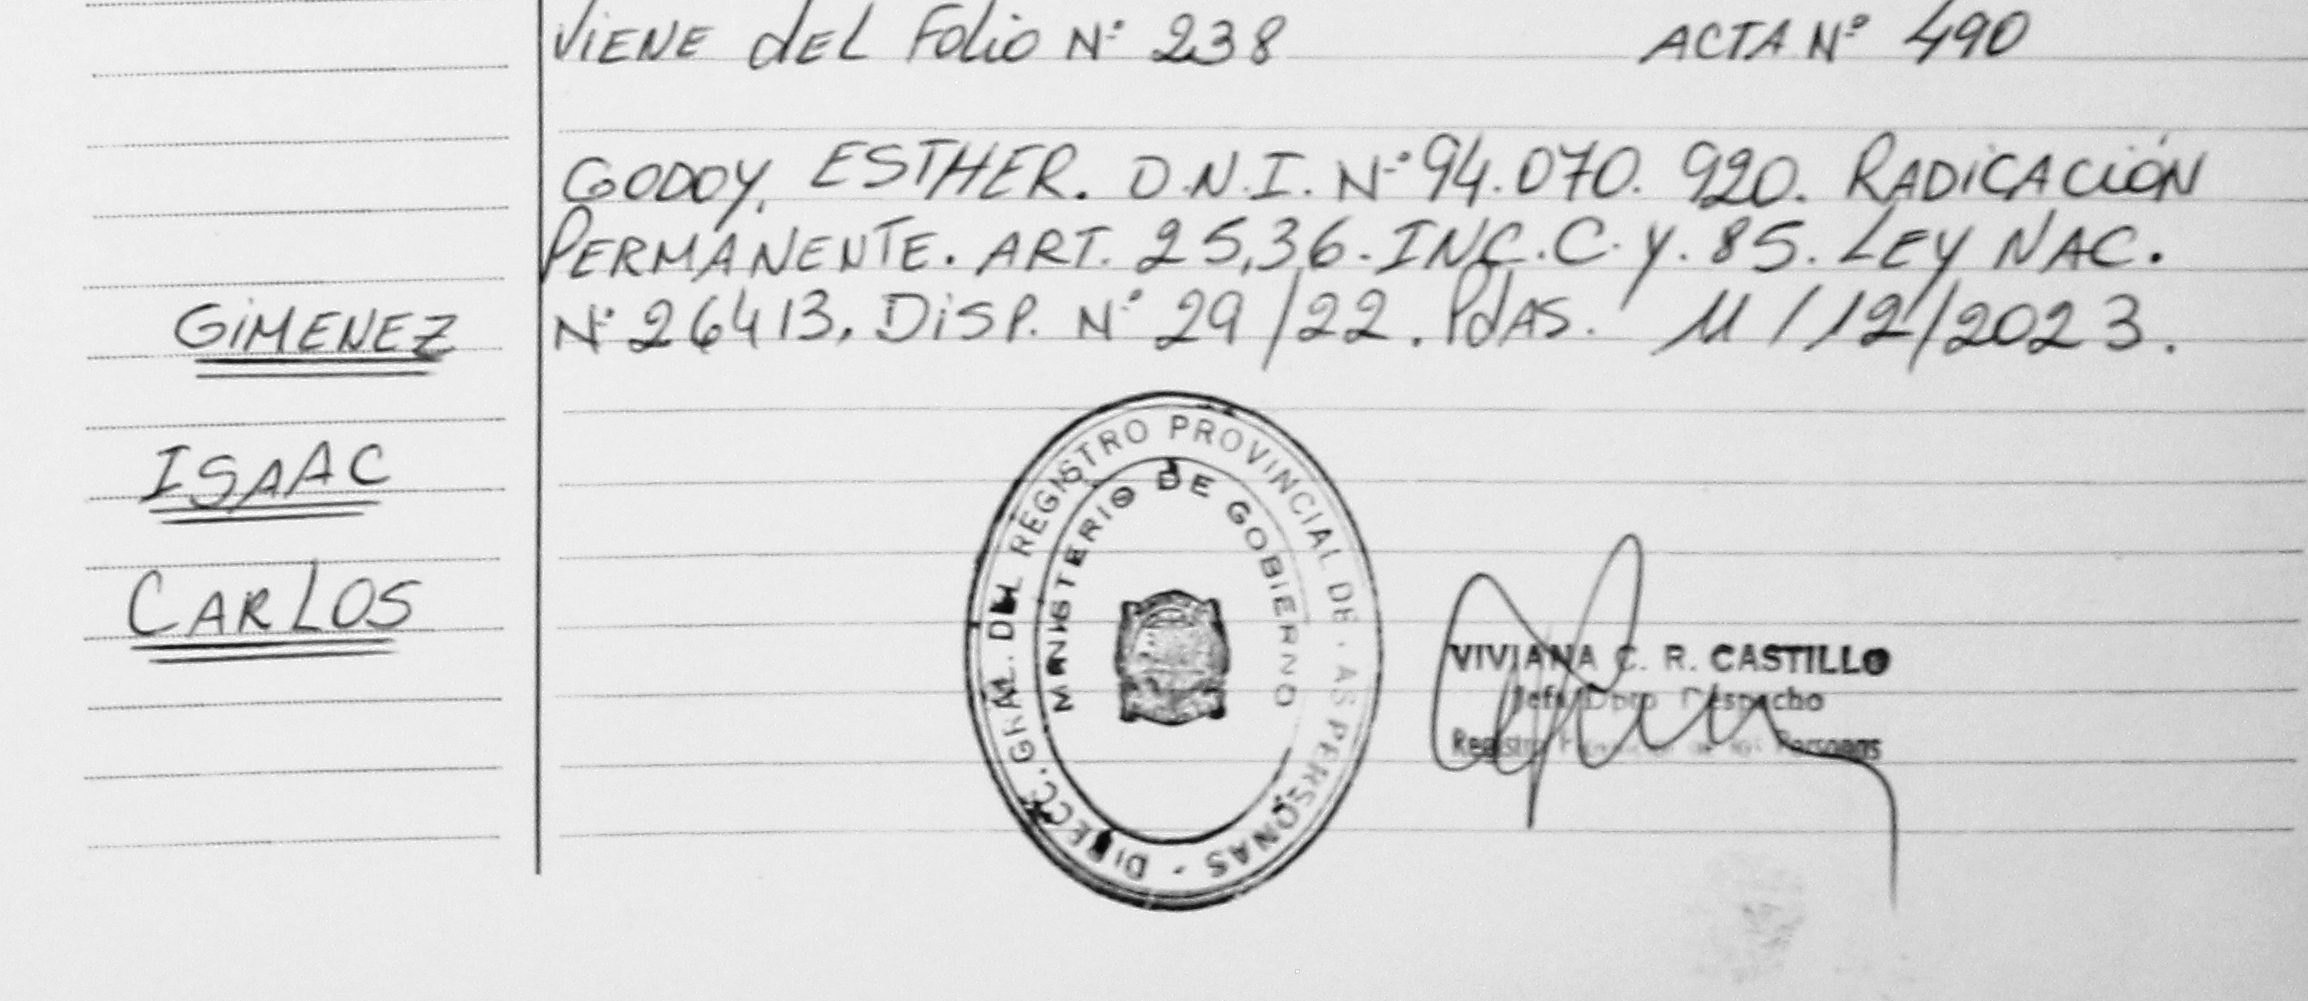 ViENE dEL Folio N° 238 ACTA N° 490
GODOY, ESTHER. D.N.I. N° 94.070.920. RADiCACióN
PERMANENTE. ART. 25,36. INC. C. Y. 85. LEY NAC.
N° 26413. DiSP. N° 29/22. PdAS. 11/12/2023.
GiMENEZ
ISAAC
CARLOS
DIRECC. GRAL. DEL REGISTRO PROVINCIAL DE LAS PERSONAS -
MINISTERIO DE GOBIERNO
VIVIANA C. R. CASTILLO
Jefa Dpto Despacho
Registro de las Personas